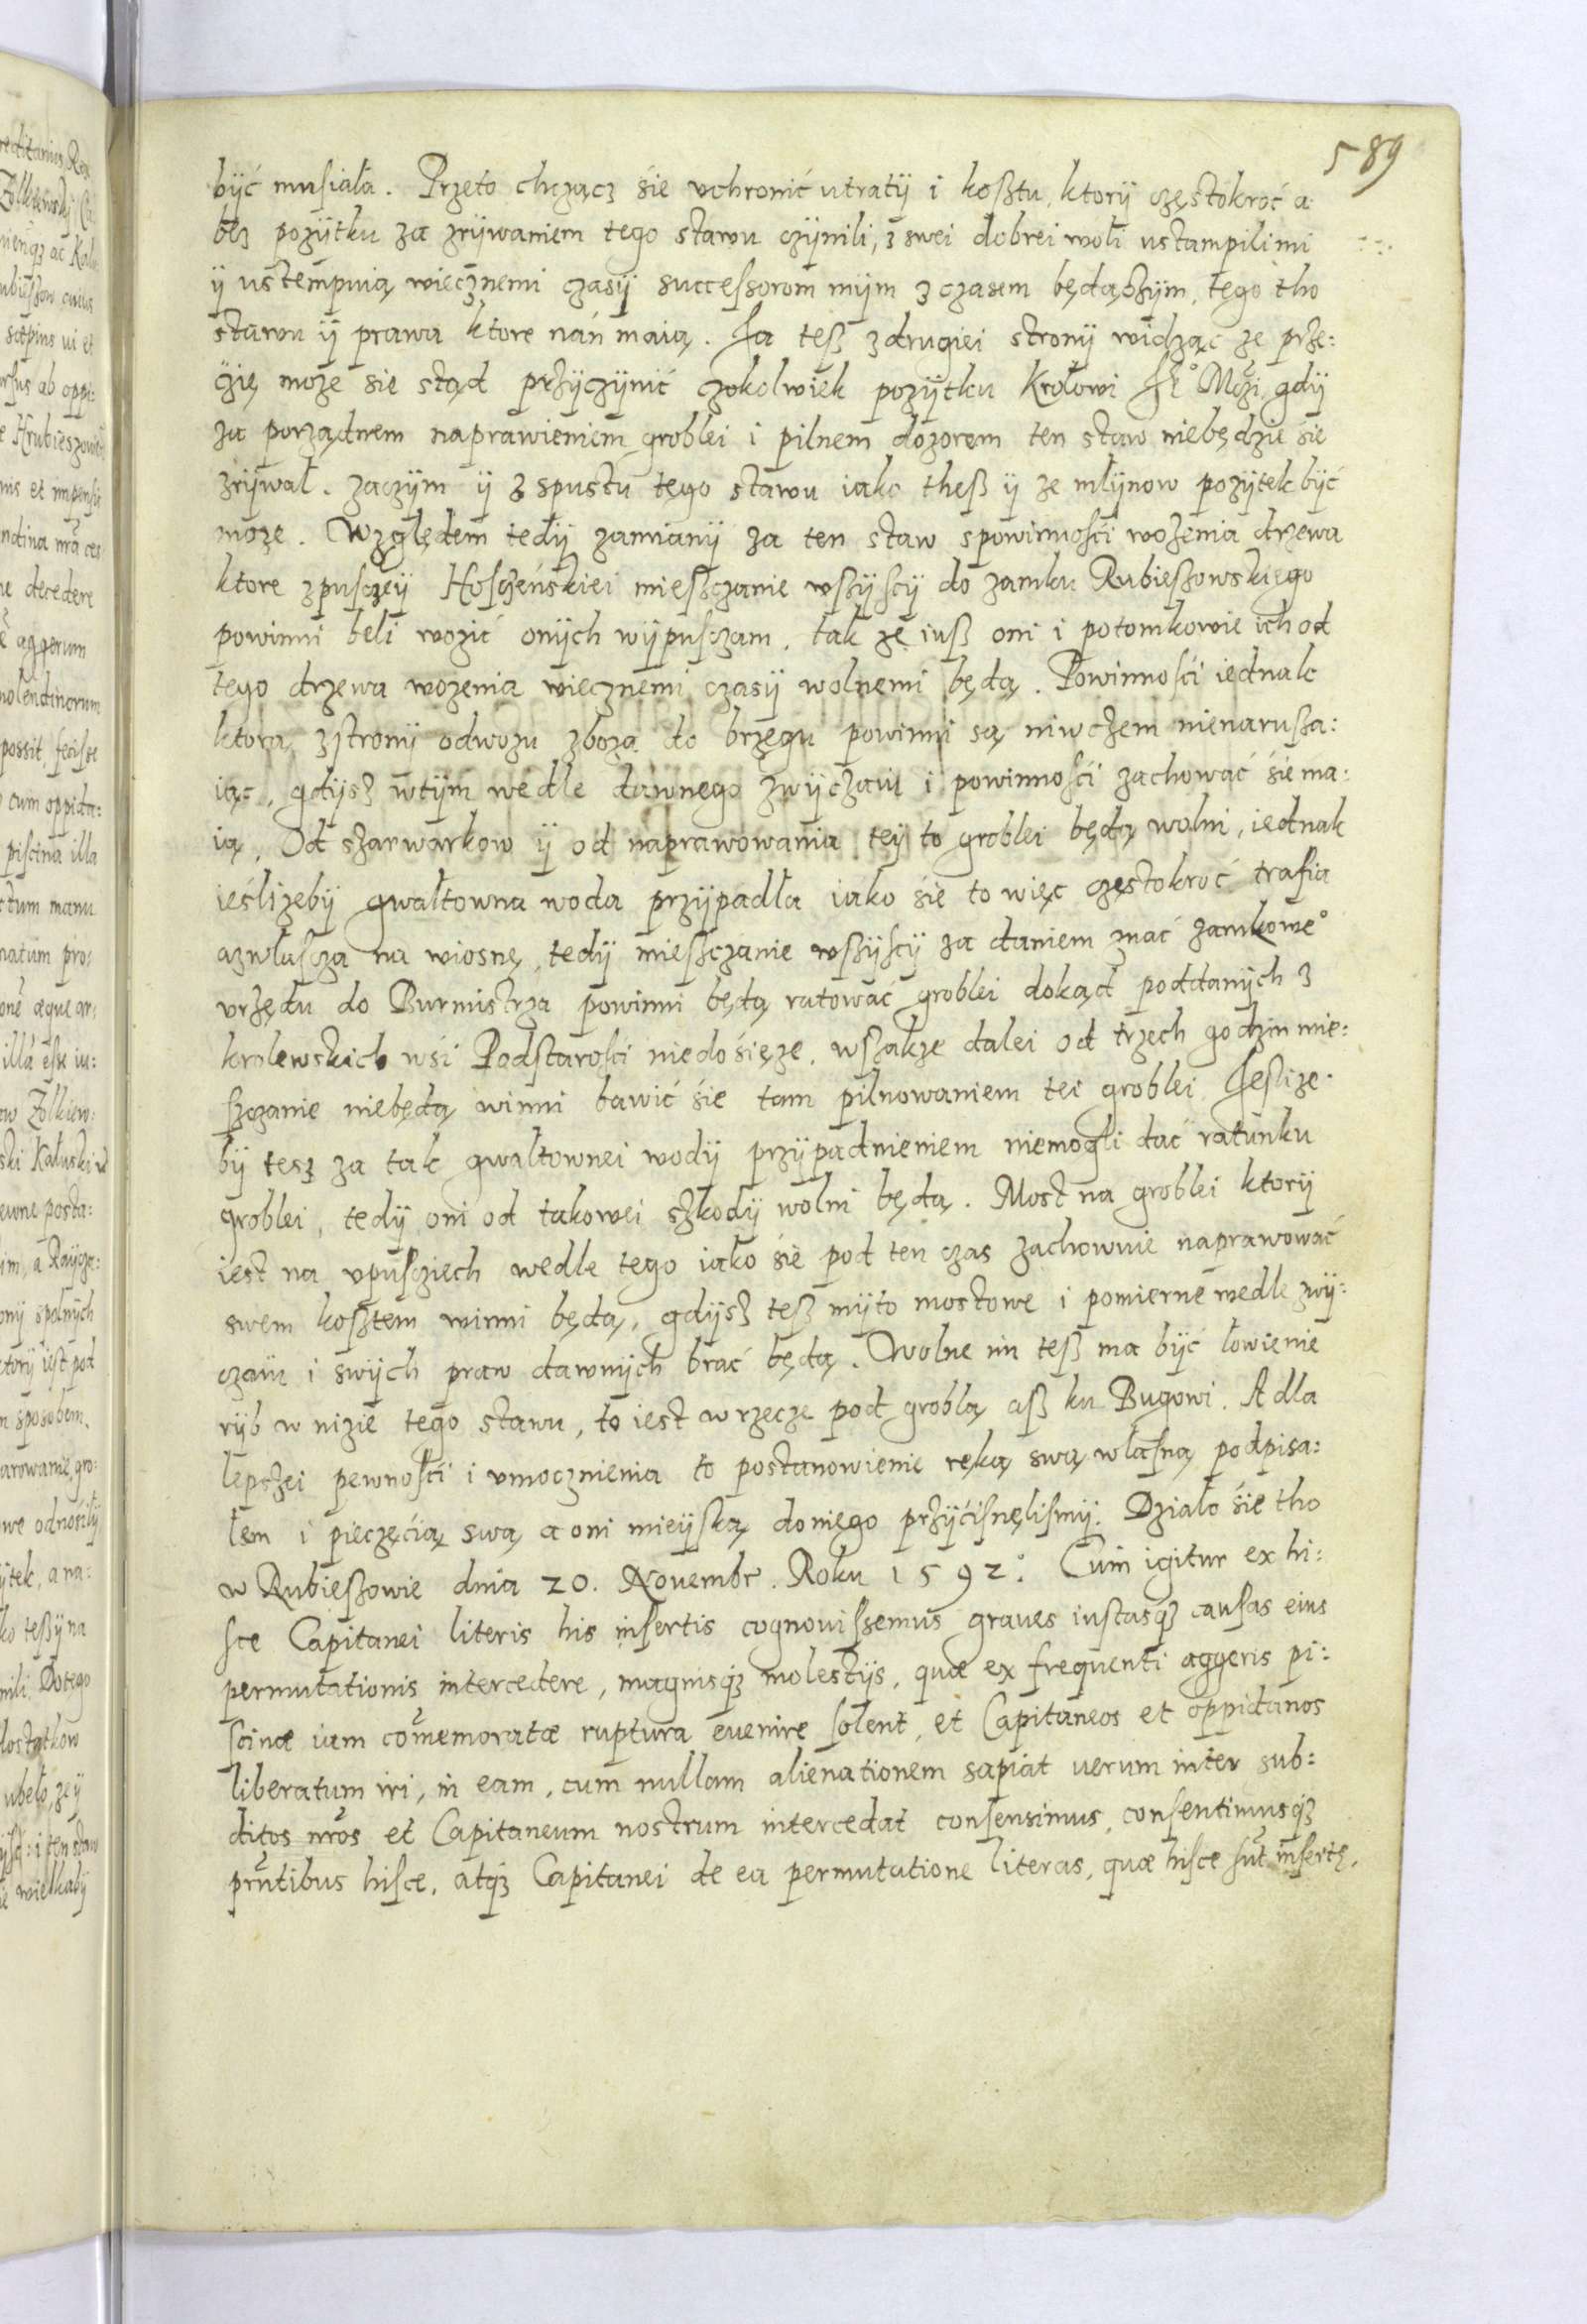 589
być musiała. Przeto chcząc sie uchronić utraty i kosztu, ktory częstokroć a
bez pożytku za zrywaniem tego stawu czynili, z swei dobrei woli ustampili mi
ÿ ustempuią wiecznemi czasy successorom mym z czasem będączym, tego tho
stawu ÿ prawa ktore nań maią. Ja tesz z drugiei strony widząc ze prze:
czię moze sie stąd przyczynić czokolwiek pozytku Krolowi J̃e° Mczi, gdy
za porządnem naprawieniem groblei i pilnem dozorem ten staw niebędzie sie
zrywał. zaczym ÿ z spustu tego stawu iako thesz ÿ ze młynow pozytek być
moze. Względem tedy zamiany za ten staw s powinnosci wozenia drzewa
ktore z pusczey Hosczeńskiei miesczanie wszyscy do zamku Rubieszowskiego
powinni beli wozić onych wypusczam, tak ze iusz oni i potomkowie ich od
tego drzewa wozenia wiecznemi czasy wolnemi będą. Powinnosci iednak
ktora z strony odwozu zboza do brzegu powinni są niwczem nienarusza:
iąc, gdysz w tym wedle dawnego zwyczaiu i powinnosci zachować sie ma:
ią. Od szarwarkow ÿ od naprawowania tey to groblei będą wolni, iednak
ieslizeby gwałtowna woda przypadła iako sie to więc częstokroć trafia
a zwłascza na wiosnę, tedy miesczanie wszyscy za daniem znać zamkowe°
urzędu do Burmistrza powinni będą ratować groblei dokąd poddanych z
krolewskich wsi Podstarosci niedosięze, wszakze dalei od trzech godzin mie:
szczanie niebędą winni bawić sie tam pilnowaniem tei groblei. Jeslize
by tesz za tak gwałtownei wody przypadnieniem niemogli dać ratunku
groblei, tedy oni od takowei szkody wolni będą. Most na groblei ktory
iest na upusciech wedle tego iako sie pod ten czas zachowuie naprawować
swem kosztem winni będą, gdysz tesz myto mostowe i pomierne wedle zwy:
czaiu i swych praw dawnych brać będą. Wolne im tesz ma być łowienie
ryb w nizie tego stawu, to iest w rzecze pod groblą asz ku Bugowi. A dla
lepszei pewnosci i umocznienia to postanowienie ręką swą własną podpisa:
łem i pieczęcią swą a oni mieyską do niego przycisnęlismy. Działo sie tho
w Rubieszowie dnia 20. Novembr. Roku 1592° Cum igitur ex hi:
sce Capitanei literis his insertis cognovissemus graves iustasq̃ causas eius
permutationis intercedere, magnisq̃ molestijs, quæ ex frequenti aggeris pi:
scinæ iam com̃emoratæ ruptura evenire solent, et Capitaneos et oppidanos
liberatum iri, in eam, cum nullam alienationem sapiat verum inter sub:
ditos nr̃os et Capitaneum nostrum intercedat consensimus, consentimusq̃
prñtibus hisce, atq̃ Capitanei de ea permutatione literas, quæ hisce sũt insertę,